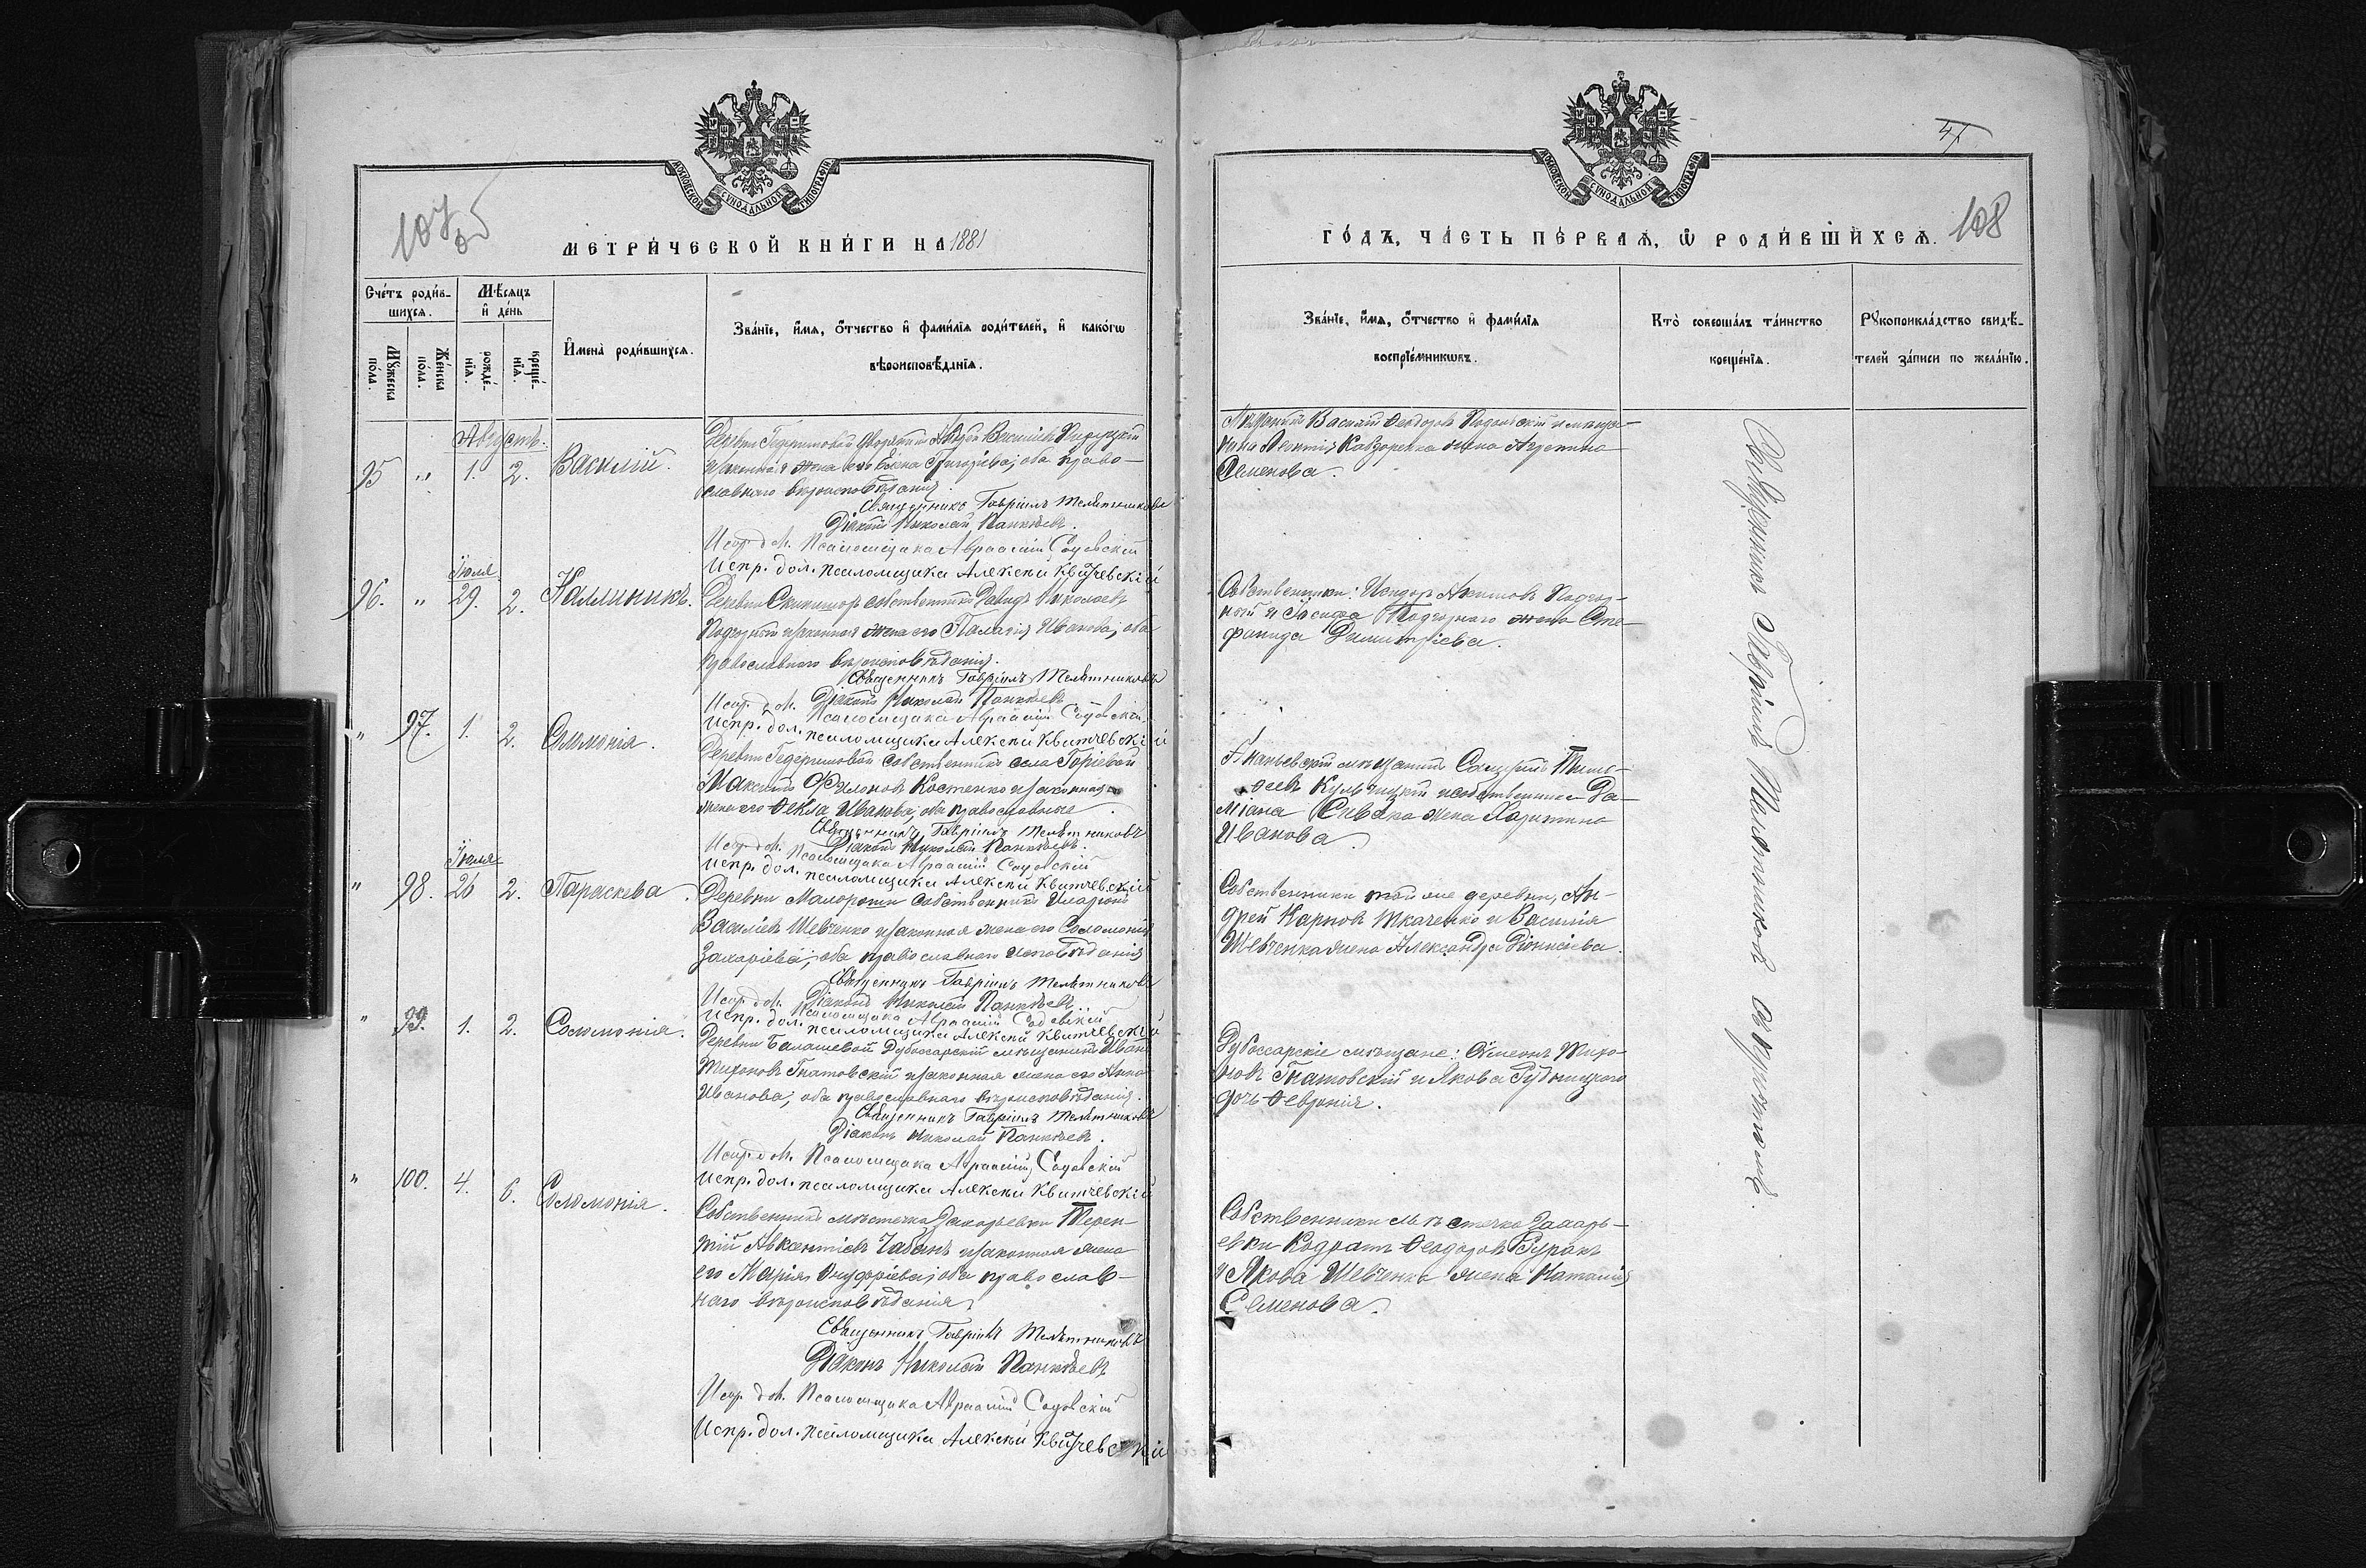 МОСКОВСКОЙ СѴНОДАЛЬНОЙ ТИПОГРАФІИ
107 об
МЕТРИ́ЧЕСКОЙ КНИ́ГИ НА 1881
Сче́тъ роди́в-
шихсѧ.
Мѣ́сѧцъ
и҆ де́нь
Мꙋ́жеска
по́ла.
Же́нска
по́ла.
рожде́-
нїѧ.
креще́-
нїѧ.
И҆мена̀ роди́вшихсѧ.
Зва́нїе, и҆́мѧ, ѻ҆́тчество и҆ фами́лїѧ роди́телей, и҆ како́гѡ
вѣроисповѣ́данїѧ.
Августъ.
95 " 1. 2. Василій.
Деревни Гедеримовой дворянинъ Василіевъ
и законная жена его Елена Григоріева, оба право-
славнаго вѣроисповѣданія
Священникъ Гавріилъ Мелѣтниковъ
Діаконъ Николай Панкѣевъ.
Испр. дол. Псаломщика Авраамій Содовскій
Испр. дол. псаломщика Алексѣй Квитчевскій
Іюля
96. " 29. 2. Каллиникъ.
Деревни собственникъ Давидъ Николаевъ
Подгорный и законная жена его Пелагія Иванова, оба
православнаго вѣроисповѣданія.
Священникъ Гавріилъ Мелѣтниковъ
Діаконъ Николай Панкѣевъ
Испр. дол. Псаломщика Авраамій Содовскій
Испр. дол. псаломщика Алексѣй Квитчевскій
" 97. 1. 2. Соломонія.
Деревни Гедеримовой собственникъ села
Максимъ Филоновъ Костенко и законная
жена его Ѳекла Иванова, оба православные
Священникъ Гавріилъ Мелѣтниковъ
Діаконъ Николай Панкѣевъ.
Испр. дол. Псаломщика Авраамій Содовскій
Испр. дол. псаломщика Алексѣй Квитчевскій
Іюля
" 98. 26 2. Параскева.
Деревни Малоротки собственникъ Иларіонъ
Василіевъ Шевченко и законная жена его Соломонія
Захаріева, оба православнаго исповѣданія
Священникъ Гавріилъ Мелѣтниковъ
Діаконъ Николай Панкѣевъ.
Испр. дол. Псаломщика Авраамій Содовскій
Испр. дол. псаломщика Алексѣй Квитчевскій
" 99. 1. 2. Соломонія.
Деревни Балашевой Дубоссарскій мѣщанинъ Иванъ
Тихоновъ Гнатовскій и законная жена его Анна
Иванова, оба православнаго вѣроисповѣданія.
Священникъ Гавріилъ Мелѣтниковъ
Діаконъ Николай Панкѣевъ.
Испр. дол. Псаломщика Авраамій Содовскій
Испр. дол. псаломщика Алексѣй Квитчевскій
" 100. 4. 6. Соломонія.
Собственникъ мѣстечка Захарьевки Терен-
тій Авксентіевъ Чабанъ и законная жена
его Марія Онуфріева, оба православ-
наго вѣроисповѣданія
Священникъ Гавріилъ Мелѣтниковъ
Діаконъ Николай Панкѣевъ
Испр. дол. Псаломщика Авраамій Содовскій
Испр. дол. псаломщика Алексѣй Квитчевскій
МОСКОВСКОЙ СѴНОДАЛЬНОЙ ТИПОГРАФІИ
108
ГО́ДЪ, ЧА́СТЬ ПЕ́РВАѦ, Ѡ҆ РОДИ́ВШИХСѦ.
Зва́нїе, и҆́мѧ, ѻ҆́тчество и҆ фами́лїѧ
воспрїе́мникѡвъ.
Кто̀ соверша́лъ та́инство
креще́нїѧ.
Рꙋкоприкла́дство свидѣ́-
телей за́писи по жела́нїю.
Мѣщанинъ Василій Ѳеодоровъ и мѣща-
нина Леонтія жена Агрепина
Семенова.
Собственники: Исидоръ Акимовъ Подгор-
ный и Іосифа Подгорнаго жена Сте-
фанида Димитріева.
Ананьевскій мѣщанинъ Тимо-
ѳеевъ Кульчицкій и собственника Да-
міана Сивака жена Харитина
Иванова.
Собственники той же деревни, Ан-
дрей Карповъ Ткаченко и Василія
Шевченка жена Александра Діонисіева.
Дубоссарскіе мѣщане: Симеонъ Тихо-
новъ Гнатовскій и Якова Рудницкаго
дочь Ѳевронія.
Собственники мѣстечка Захарь-
евки Кодратъ Ѳеодоровъ Буракъ
и Якова Шевченка жена Наталія
Семенова.
Священникъ Гавріилъ Мелѣтниковъ съ причтомъ.